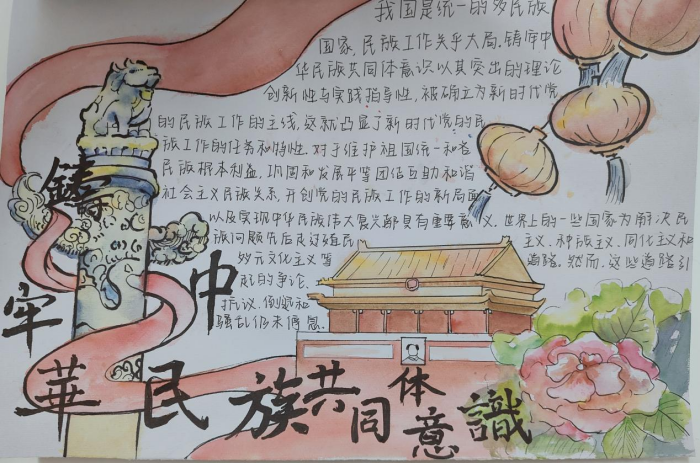 我国是统一的多民族
国家,民族工作关乎大局,铸牢中
华民族共同体意识以其突出的理论
创新性与实践指导性,被确立为新时代党
的民族工作的主线,这就凸显了新时代党的民
族工作的任务和特性.对于维护祖国统一和各
民族根本利益,巩固和发展平等团结互助和谐
社会主义民族关系,开创党的民族工作的新局面
以及实现中华民族伟大复兴都具有重要意义.世界上的一些国家为解决民
族问题先后走过殖民主义、种族主义、同化主义和
多元文化主义等道路.然而,这些道路引
起的争论、
抗议、倒退和
骚乱仍未停息.
鑄
牢
中
華民族共同体意識